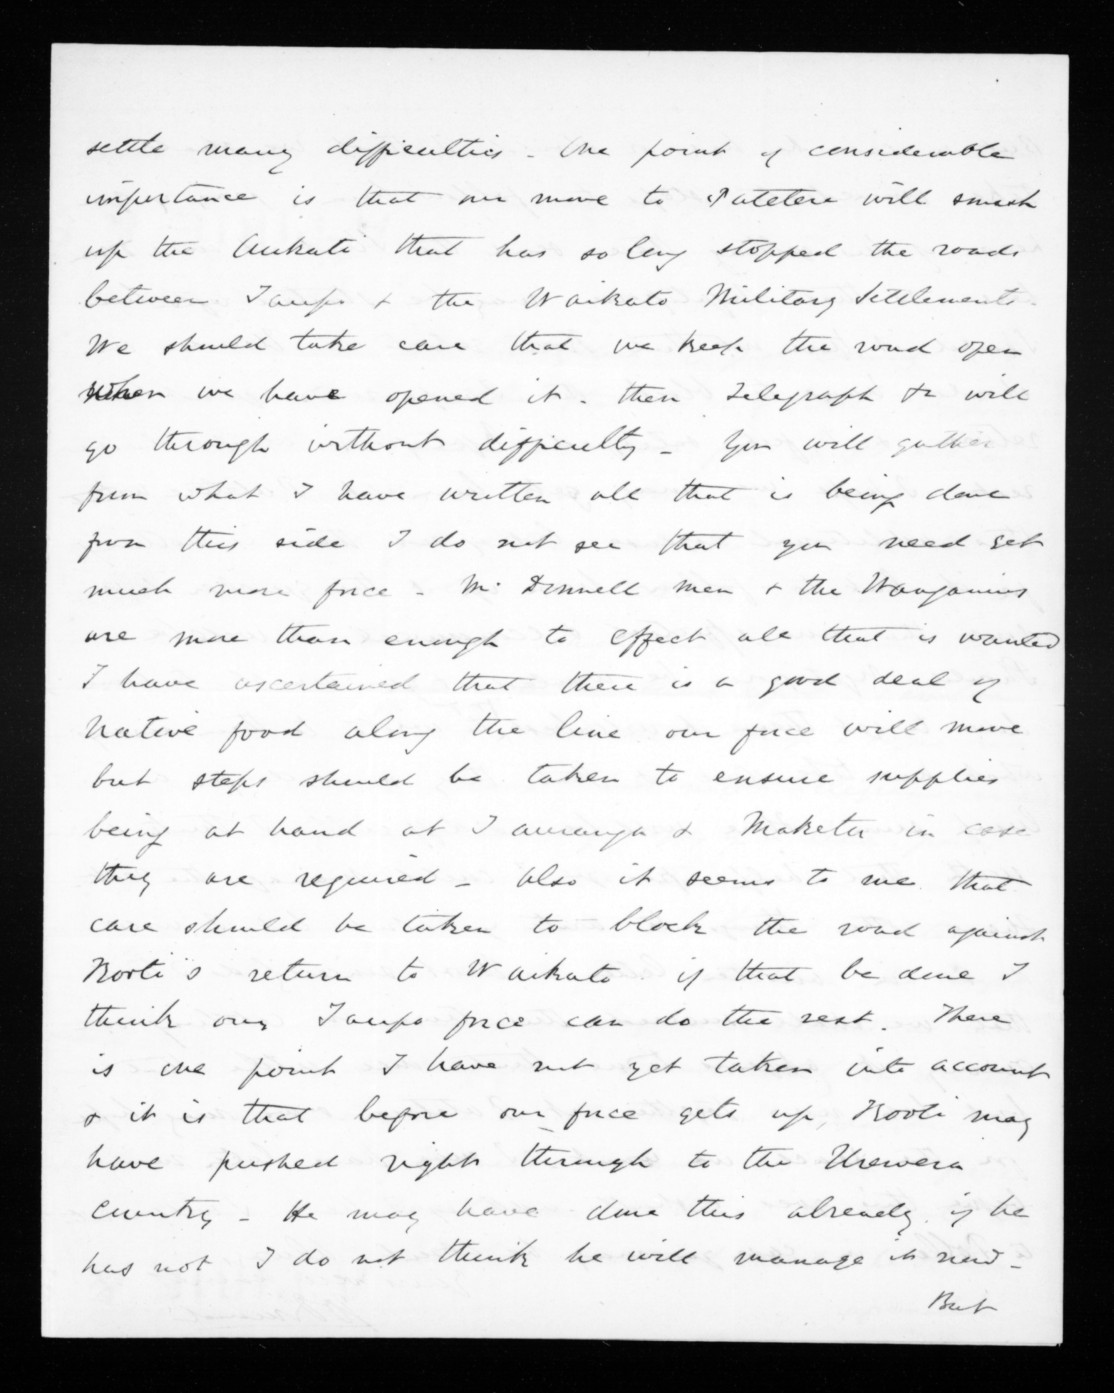 settle many difficulties - One point of considerable
importance is that our move to Patetere will smash
up the Aukati that has so long stopped the roads
between Taupo & the Waikato Military Settlements -
We should take care that we keep the road open
when we have opened it - then Telegraph &c will
go through without difficulty - You will gather
from what I have written all that is being done
from this side I do not see that you need get
much more force - McDonnell men & the Wanganuis
are more than enough to effect all that is wanted
I have ascertained that there is a good deal of
Native food along the line our force will move
but steps should be taken to ensure supplies
being at hand at Tauranga & Maketu in case
they are required - Also it seems to me that
care should be taken to block the road against
Kooti's return to Waikato if that be done I
think our Taupo force can do the rest. There
is one point I have not yet taken into account
& it is that before our force gets up, Kooti may
have pushed right through to the Urewera
Country - He may have done this already, if he
has not I do not think he will manage it now -
But